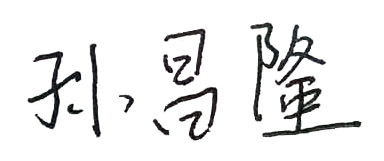 孙昌隆